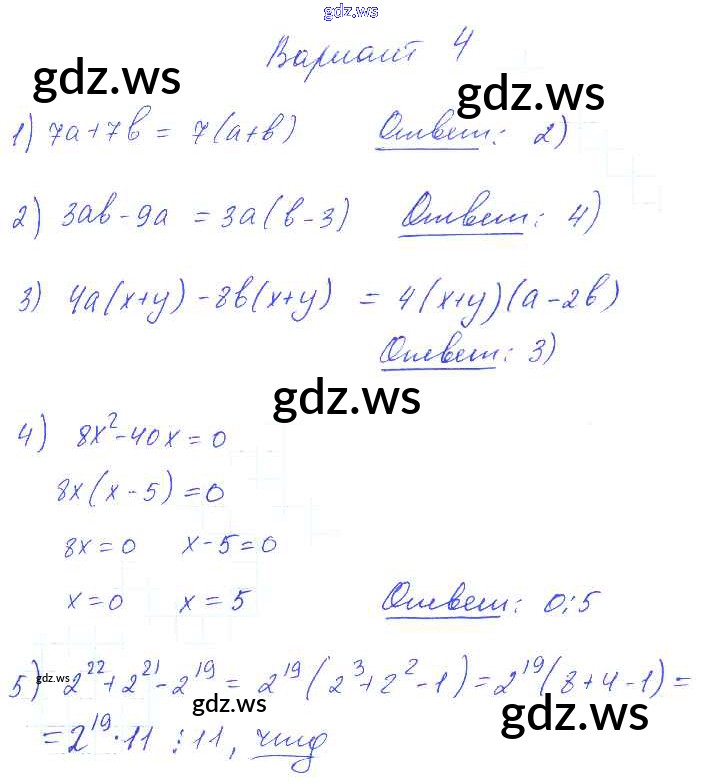 gdz.ws
Вариант 4
gdz.ws
gdz.ws
1) 7a+7b = 7(a+b) Ответ: 2)
2) 3ab-9a = 3a(b-3) Ответ: 4)
3) 4a(x+y)-8b(x+y) = 4(x+y)(a-2b)
Ответ: 3)
gdz.ws
4) 8x²-40x=0
8x(x-5)=0
8x=0 x-5=0
x=0 x=5 Ответ: 0;5
gdz.ws
5) 2²²+2²¹-2¹⁹ = 2¹⁹(2³+2²-1)=2¹⁹(8+4-1)=
gdz.ws
gdz.ws
=2¹⁹·11 ⋮11, чтд